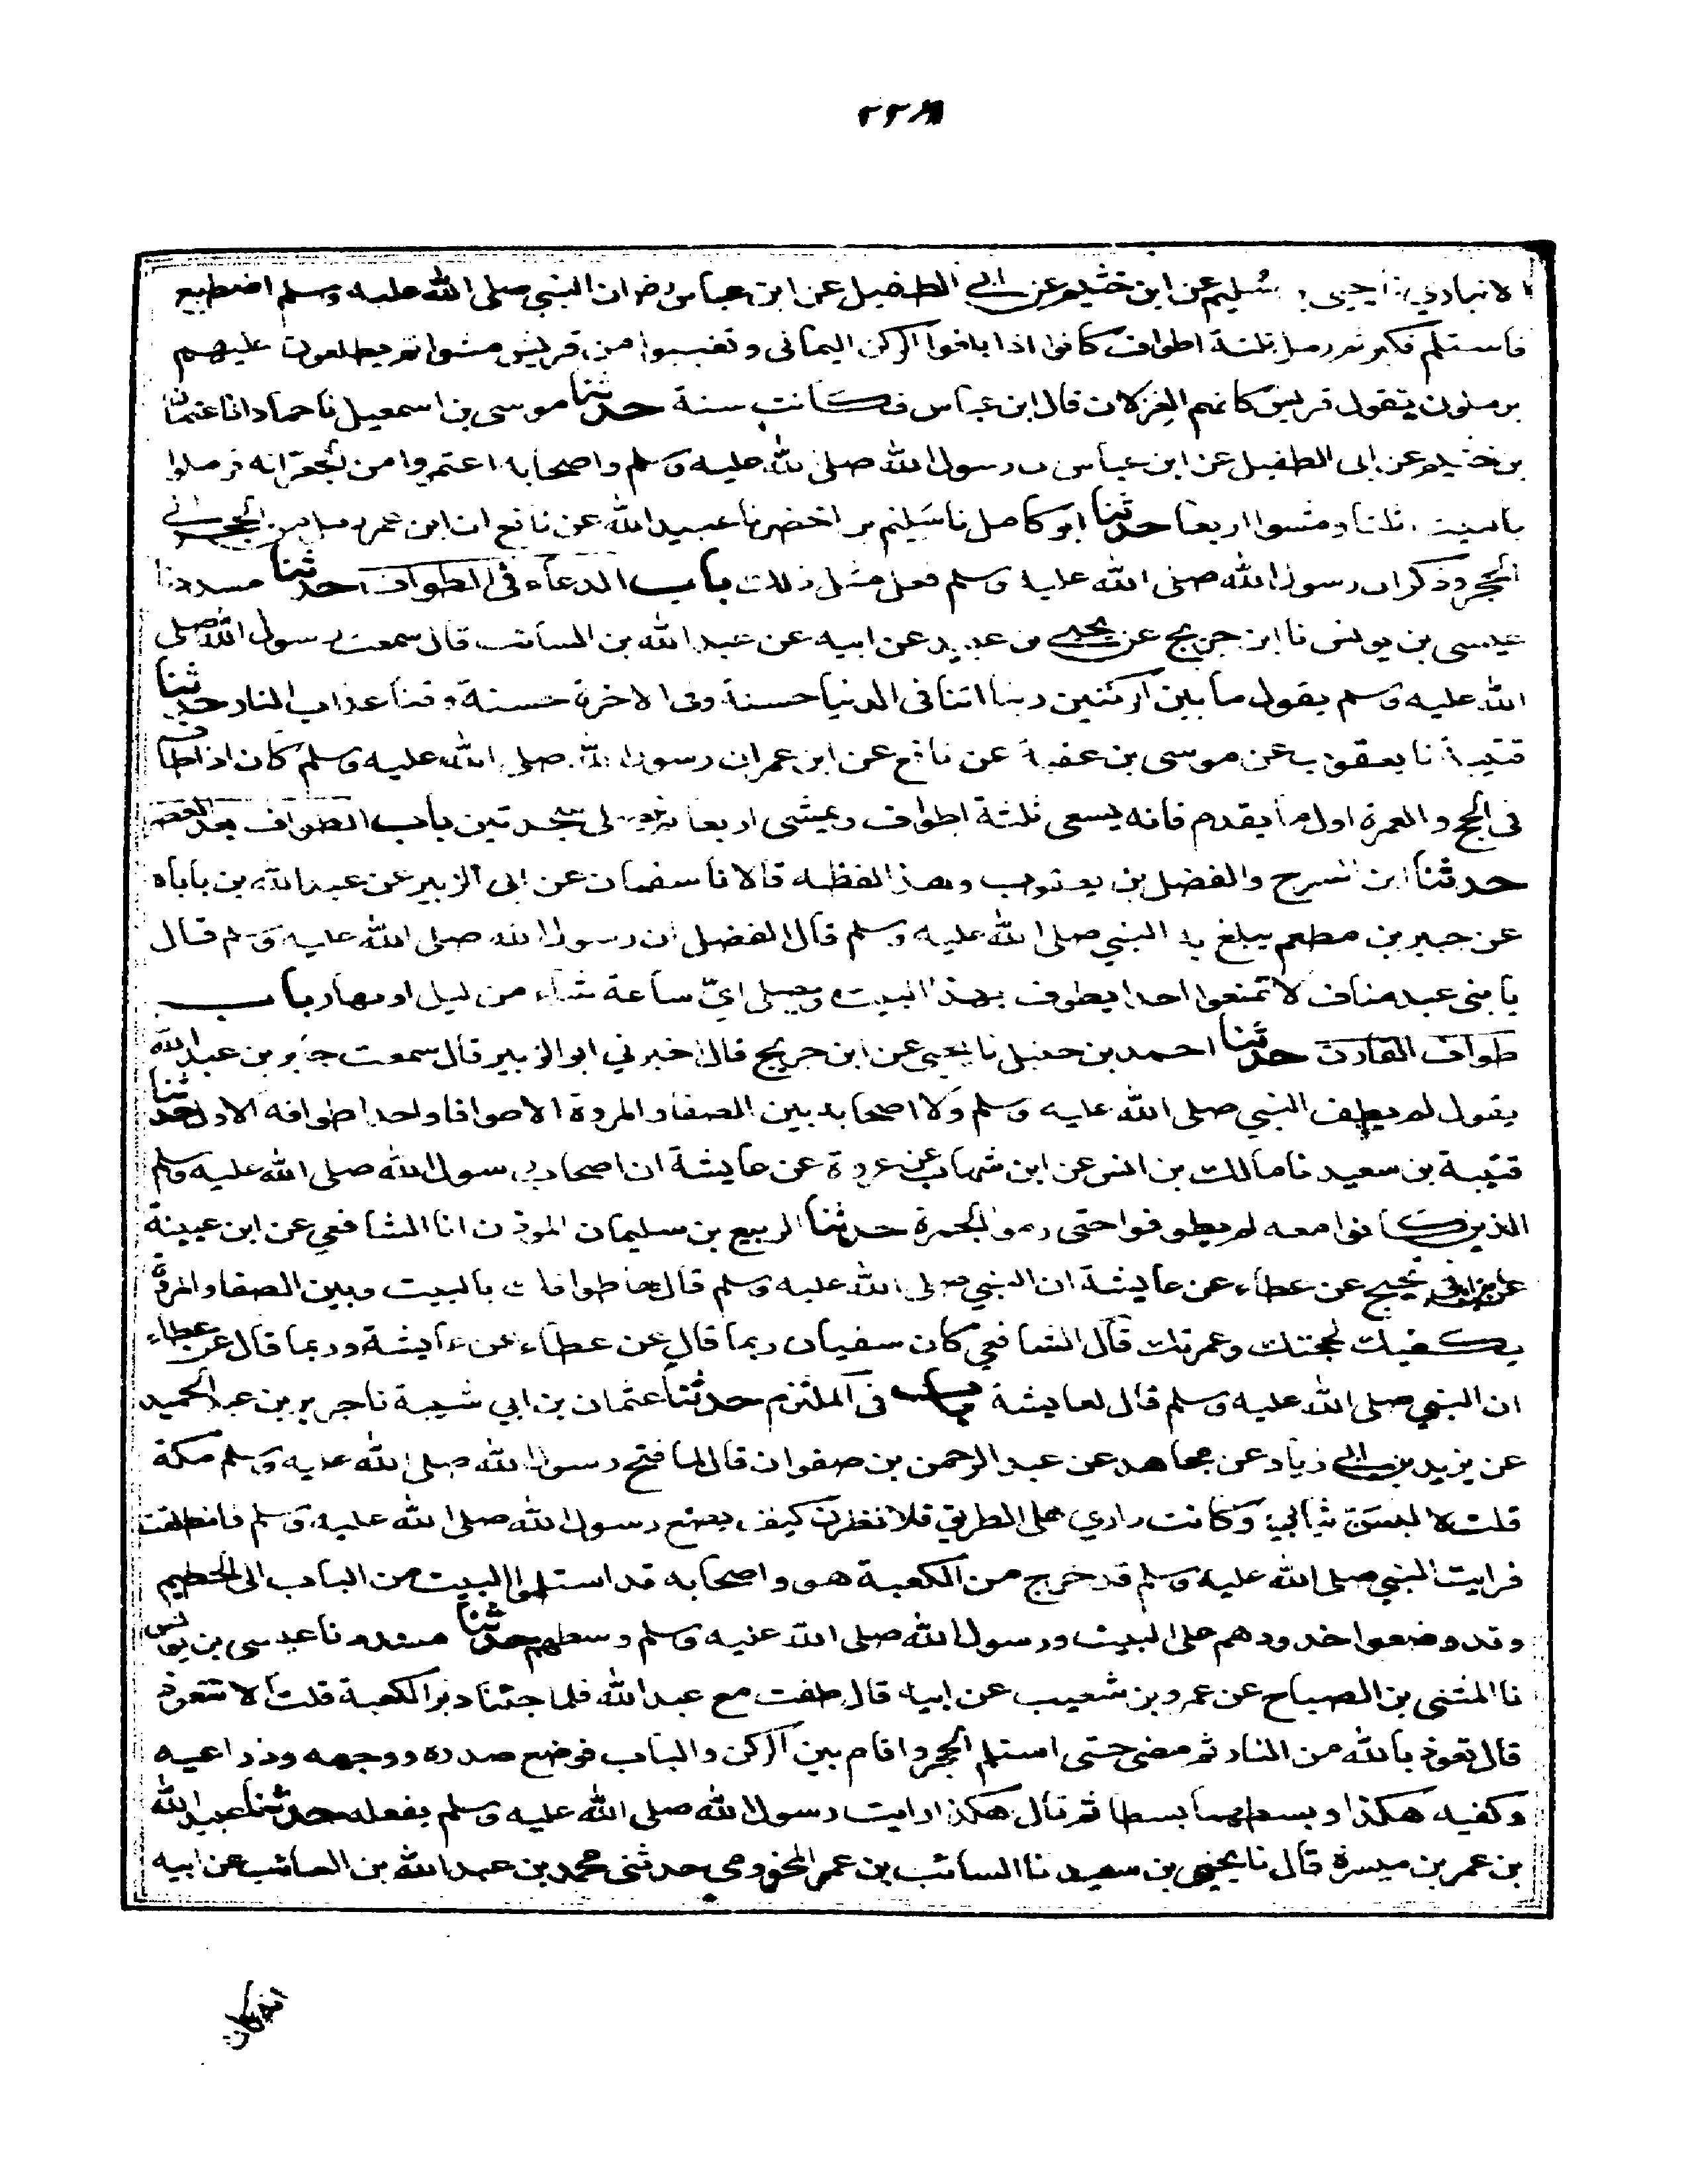 الانباري نا يحيى بن سُليم عن ابن خثيم عن ابى الطفيل عن ابن عباس رض ان النبي صلى الله عليه وسلم اضطبع
فاستلم فكبر ثم رمل ثلثة اطواف كانوا اذا بلغوا الركن اليمانى وتغيبوا من قريش مشوا ثم يطلعون عليهم
يرملون تقول قريش كانهم الغزلان قال ابن عباس فكانت سنة حدثنا موسى بن اسمعيل نا حماد انا عبد الله
بن خثيم عن ابى الطفيل عن ابن عباس ان رسول الله صلى الله عليه وسلم واصحابه اعتمروا من الجعرانه فرملوا
بالبيت ثلثا ومشوا اربعا حدثنا ابو كامل نا سَليم بن اخضر نا عبيد الله عن نافع ان ابن عمر رمل من الحجر الى
الحجر وذكر ان رسول الله صلى الله عليه وسلم فعل مثل ذلك باب الدعاء فى الطواف حدثنا مسدد نا
عيسى بن يونس نا ابن جريج عن يحيى بن عبيد عن ابيه عن عبد الله بن السائب قال سمعت رسول الله صلى
الله عليه وسلم يقول ما بين الركنين ربنا اتنا فى الدنيا حسنة وفى الاخرة حسنة وقنا عذاب النار حدثنا
قتيبة نا يعقوب عن موسى بن عقبة عن نافع عن ابن عمر ان رسول الله صلى الله عليه وسلم كان اذا طاف
فى الحج والعمرة اول ما يقدم فانه يسعى ثلثة اطواف ويمشى اربعا ثم يصلى سجدتين باب الطواف بعد العصر
حدثنا ابن السرح والفضل بن يعقوب وهذا لفظه قالا نا سفيان عن ابى الزبير عن عبد الله بن باباه
عن جبير بن مطعم يبلغ به النبي صلى الله عليه وسلم قال الفضل ان رسول الله صلى الله عليه وسلم قال
يا بنى عبد مناف لا تمنعوا احدا يطوف بهذا البيت ويصلى ايّ ساعة شاء من ليل او نهار باب
طواف القارن حدثنا احمد بن حنبل نا يحيى عن ابن جريج قال اخبرني ابو الزبير قال سمعت جابر بن عبد الله
يقول لم يطف النبي صلى الله عليه وسلم ولا اصحابه بين الصفا والمروة الا طوافا واحدا طوافه الاول حدثنا
قتيبة بن سعيد نا مالك بن انس عن ابن شهاب عن عروة عن عايشة ان اصحاب رسول الله صلى الله عليه وسلم
الذين كانوا معه لم يطوفوا حتى رموا الجمرة حدثنا الربيع بن سليمان المؤذن انا الشافعي عن ابن عيينة
عن ابن ابى نجيح عن عطاء عن عايشة ان النبي صلى الله عليه وسلم قال لها طوافك بالبيت وبين الصفا والمروة
يكفيك لحجتك وعمرتك قال الشافعي كان سفيان ربما قال عن عطاء عن عايشة وربما قال عن عطاء
ان النبي صلى الله عليه وسلم قال لعايشة باب فى الملتزم حدثنا عثمان بن ابي شيبة نا جرير بن عبد الحميد
عن يزيد بن ابى زياد عن مجاهد عن عبد الرحمن بن صفوان قال لما فتح رسول الله صلى الله عليه وسلم مكة
قلت لا لبسَنّ ثيابي وكانت داري على الطريق فلانظرن كيف يصنع رسول الله صلى الله عليه وسلم فانطلقت
فرايت النبي صلى الله عليه وسلم قد خرج من الكعبة هو واصحابه قد استلموا البيت من الباب الى الحطيم
وقد وضعوا خدودهم على البيت ورسول الله صلى الله عليه وسلم وسطهم حدثنا مسدد نا عيسى بن يونس
نا المثنى بن الصباح عن عمرو بن شعيب عن ابيه قال طفت مع عبد الله فلما جئنا دبر الكعبة قلت الا تتعوذ
قال تعوذ بالله من النار ثم مضى حتى استلم الحجر واقام بين الركن والباب فوضع صدره ووجهه وذراعيه
وكفيه هكذا وبسطهما بسطا ثم قال هكذا رايت رسول الله صلى الله عليه وسلم يفعله حدثنا عبيد الله
بن عمر بن ميسرة قال نا يحيى بن سعيد نا السائب بن عمر المخزومي حدثنى محمد بن عبد الله بن السائب عن ابيه
انه كان